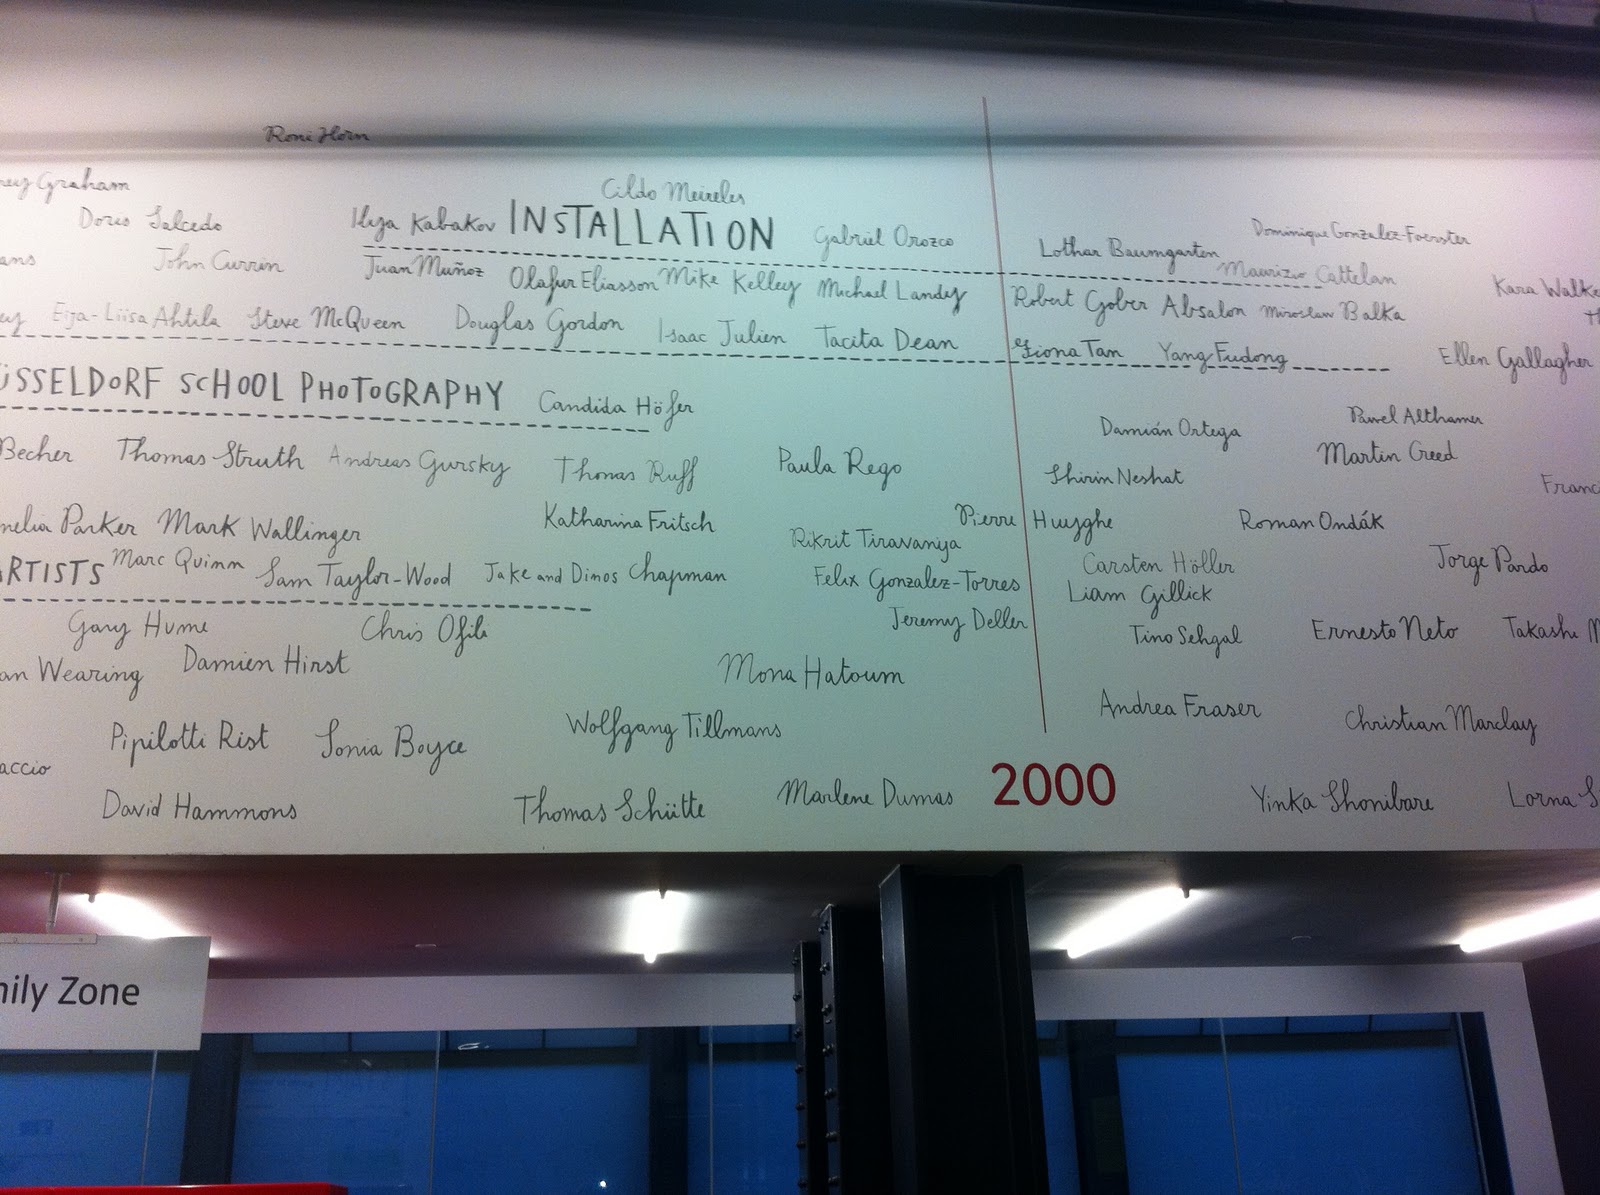 Roni Horn
Graham
Cildo Meireles
Doris Salcedo
Ilya Kabakov INSTALLATION Gabriel Orozco
Dominique Gonzalez-Foerster
Lothar Baumgarten
ans John Currin Juan Muñoz Olafur Eliasson Mike Kelley Michael Landy
Maurizio Cattelan
Robert Gober Absalon Miroslaw Balka
Kara Walke
ey Eija-Liisa Ahtila Steve McQueen Douglas Gordon Isaac Julien Tacita Dean
Fiona Tan Yang Fudong
Ellen Gallagher
ÜSSELDORF SCHOOL PHOTOGRAPHY Candida Höfer
Pawel Althamer
Damián Ortega
Martin Creed
Becher Thomas Struth Andreas Gursky Thomas Ruff Paula Rego
Shirin Neshat
Franci
nelia Parker Mark Wallinger Katharina Fritsch
Pierre Huyghe Roman Ondák
Rikrit Tiravanija
ARTISTS Marc Quinn Sam Taylor-Wood Jake and Dinos Chapman
Felix Gonzalez-Torres
Carsten Höller Jorge Pardo
Liam Gillick
Gary Hume Chris Ofili
Jeremy Deller
Tino Sehgal Ernesto Neto Takashi M
an Wearing Damien Hirst Mona Hatoum
Andrea Fraser Christian Marclay
Pipilotti Rist Sonia Boyce Wolfgang Tillmans
accio
David Hammons Thomas Schütte Marlene Dumas 2000 Yinka Shonibare Lorna S
nily Zone